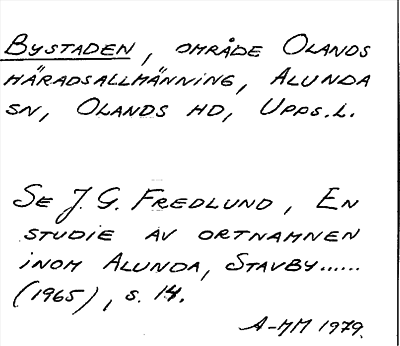 Bystaden, område Olands
häradsallmänning, Alunda
sn, Olands hd, Upps.l.
Se J. G. Fredlund, En
studie av ortnamnen
inom Alunda, Stavby......
(1965), s. 14.
A-MM 1979.